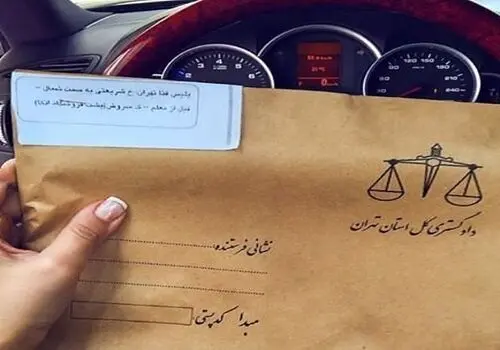 پلیس فتا تهران: خ شریعتی به سمت شمال –
قبل از معلم – ک سروش (پشت فروشگاه اتکا)
دادگستری کل استان تهران
نشانی فرستنده:
مبدا کدپستی:
2 4 6
240